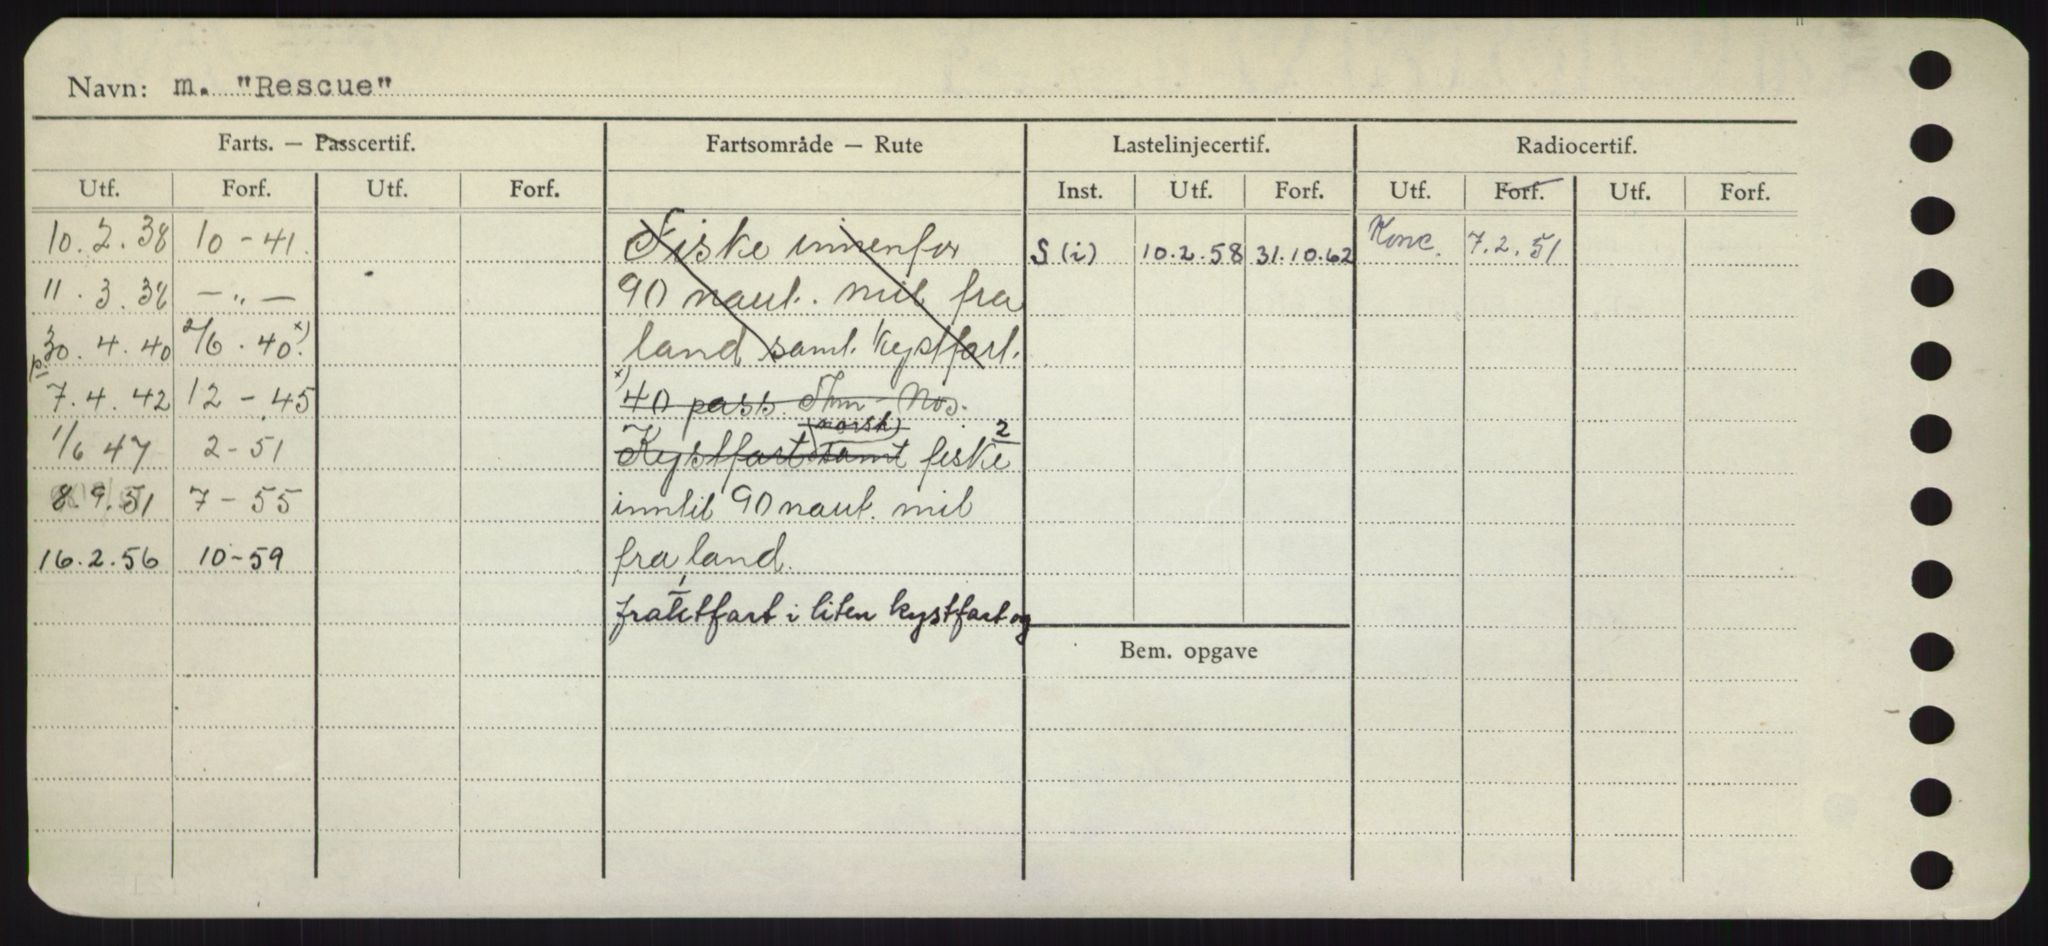 Navn: m. "Rescue"
Farts. — Passcertif. Fartsområde — Rute Lastelinjecertif. Radiocertif.
Utf. Forf. Utf. Forf. Inst. Utf. Forf. Utf. Forf. Utf. Forf.
10.2.38 10-41. Fiske innenfor S (i) 10.2.58 31.10.62 Konc. 7.2.51
11.3.38 — „ — 90 naut. mil fra
30.4.40 2/6.40. x) land samt kystfart.
p.
7.4.42 12-45 x) 40 pass.
(norsk)
1/6 47 2-51 Kystfart samt fiske 2
8.9.51 7-55 inntil 90 naut. mil
16.2.56 10-59 fra land.
1
fraktfart i liten kystfart og
Bem. opgave